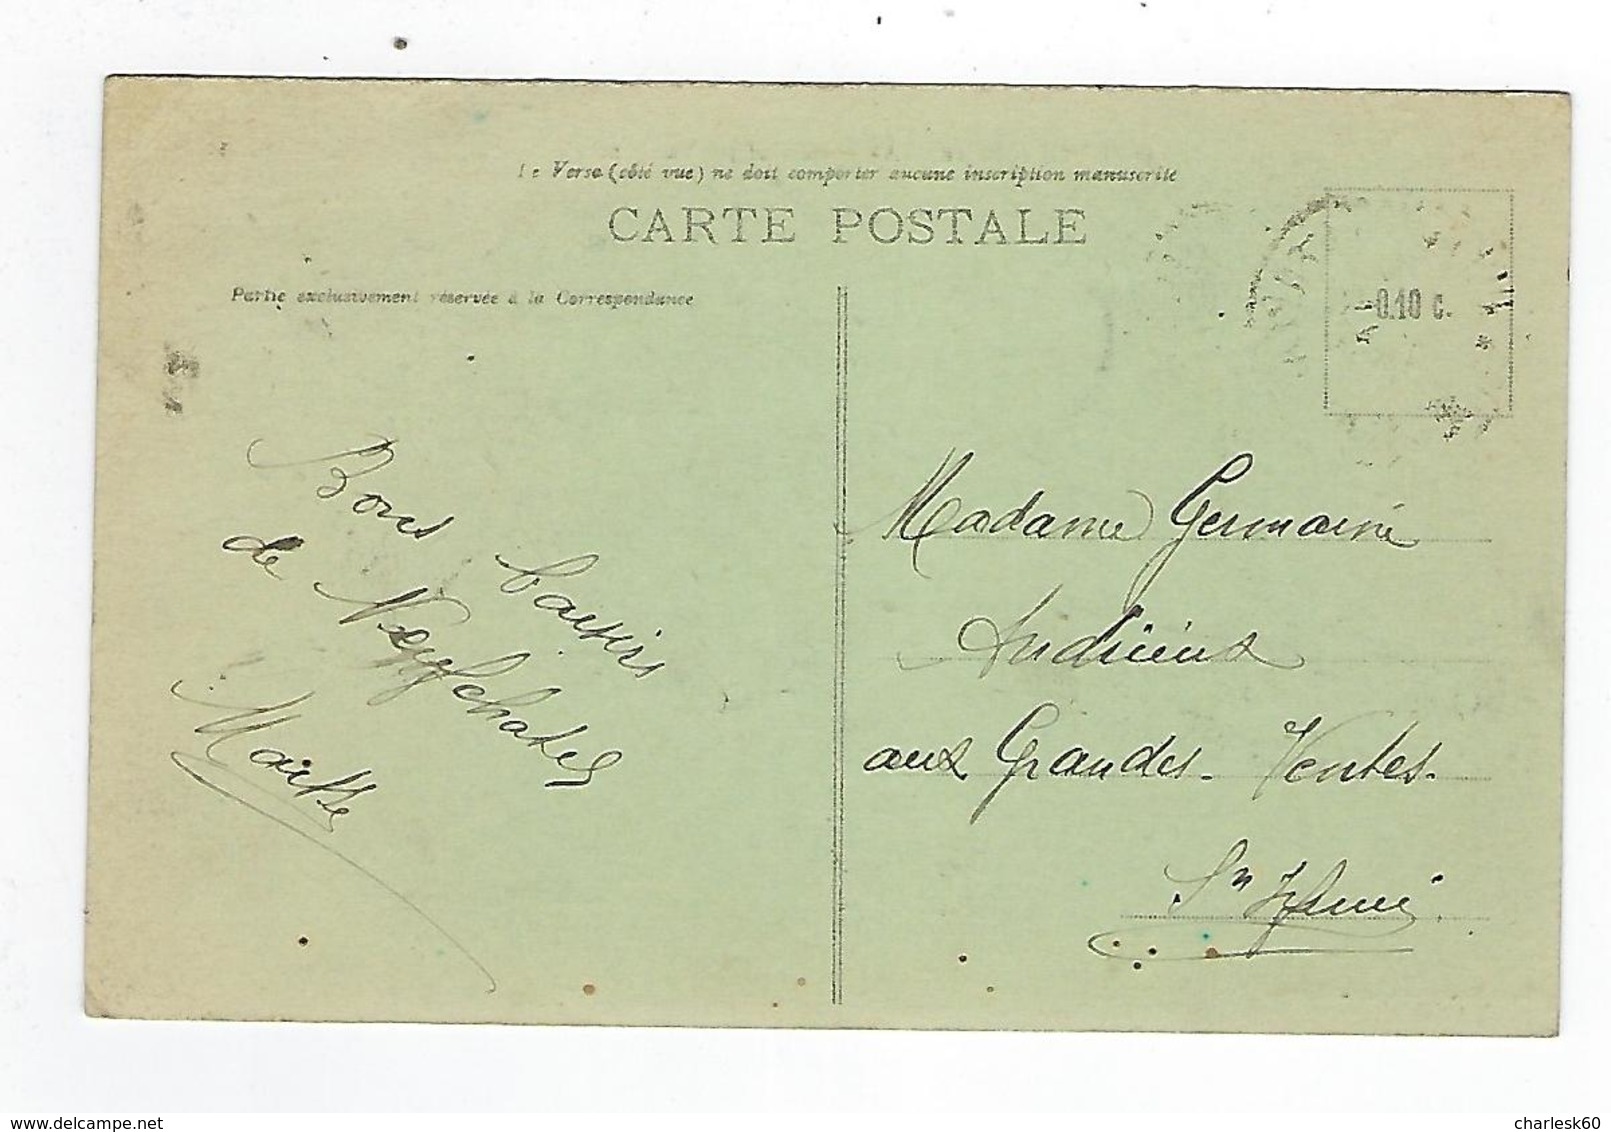 Le Verso (côté vue) ne doit comporter aucune inscription manuscrite
CARTE POSTALE
Partie exclusivement réservée à la Correspondance
0.10 c.
Bons baisers
de Neufchatel
Madame Germaine
aux Grandes-Ventes.
Sne Infre
charlesk60